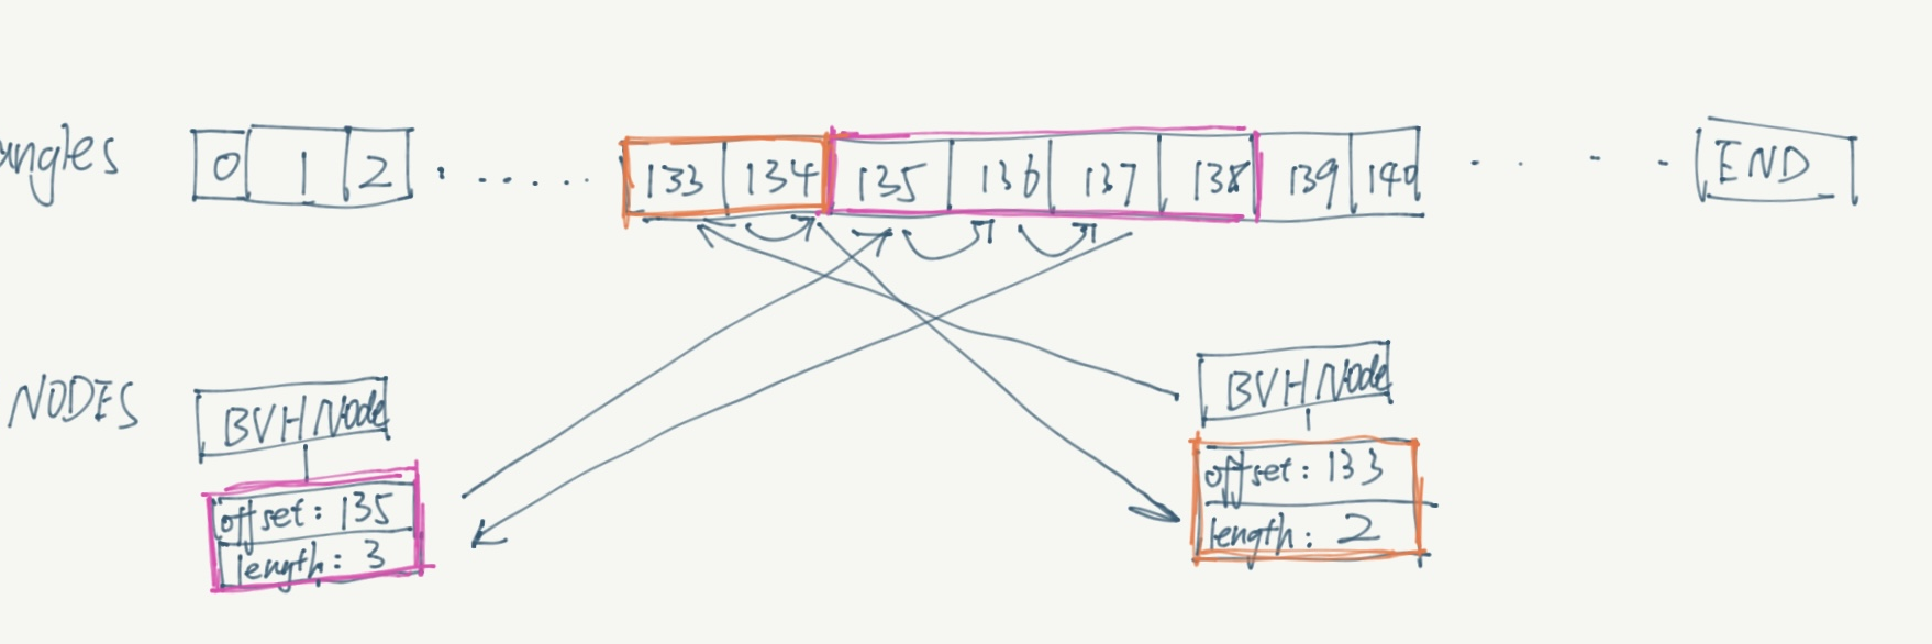 angles 0 1 2 133 134 135 136 137 138 139 140 END
NODES
BVHNode
offset: 135
length: 3
BVHNode
offset: 133
length: 2